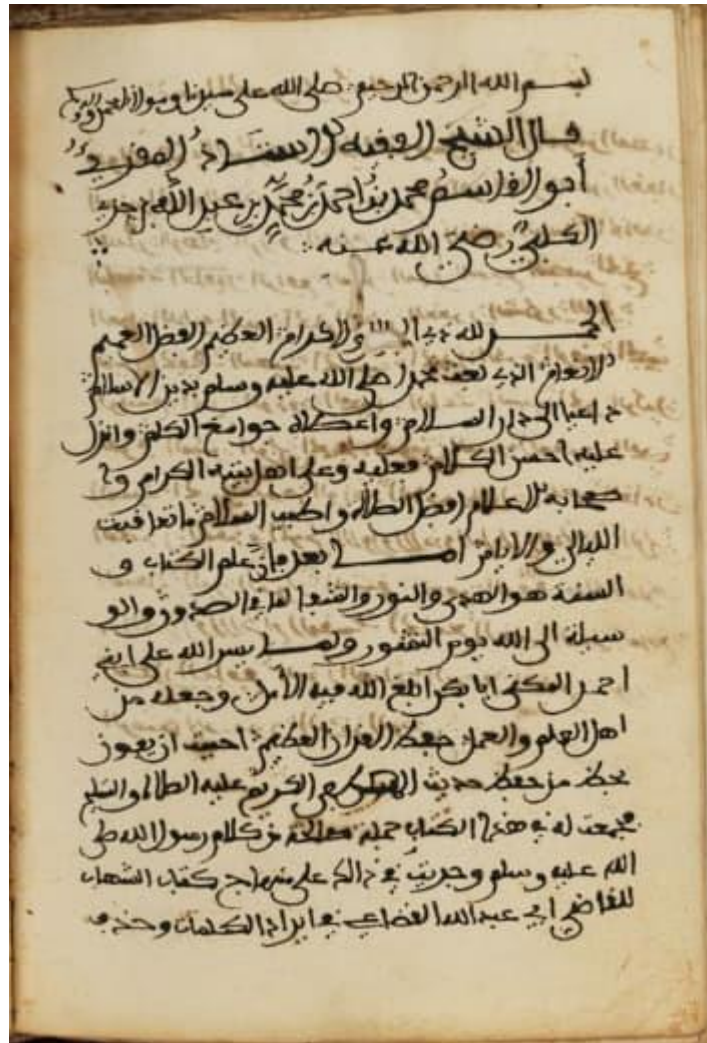 بسم الله الرحمن الرحيم صلى الله على سيدنا ومولانا محمد وآله
قال الشيخ الفقيه الاستاذ المقرئ
أبو القاسم محمد بن احمد بن محمد بن عبد الله بن جزي
الكلبي رضي الله عنه
الحمد لله ذي الجلال والاكرام العظيم الفضل العميم
الانعام الذي بعث محمدا صلى الله عليه وسلم بدين الاسلام
داعيا الى دار السلام واعطاه جوامع الكلم وانزل
عليه احسن الكلام فعليه وعلى اهل بيته الكرام و
صحابه الاعلام افضل الصلاة واطيب السلام ما تعاقبت
الليالي والايام اما بعد فان علم الكتاب و
السنة هو الهدى والنور والشفا لما في الصدور والو
سيلة الى الله يوم النشور ولما يسر الله على ابني
احمد المكنى ابا بكر ابلغ الله فيه الأمل وجعله من
اهل العلم والعمل حفظ القران العظيم احببت ان يفوز
بحظ من حفظ حديث الكريم عليه الصلاة والتسليم
فجمعت له في هذا الكتاب جملة صالحة من كلام رسول الله صلى
الله عليه وسلم وجريت في ذلك على منهاج كتاب الشهاب
للقاضي ابي عبد الله القضاعي في ايراد الكلمات وحذف